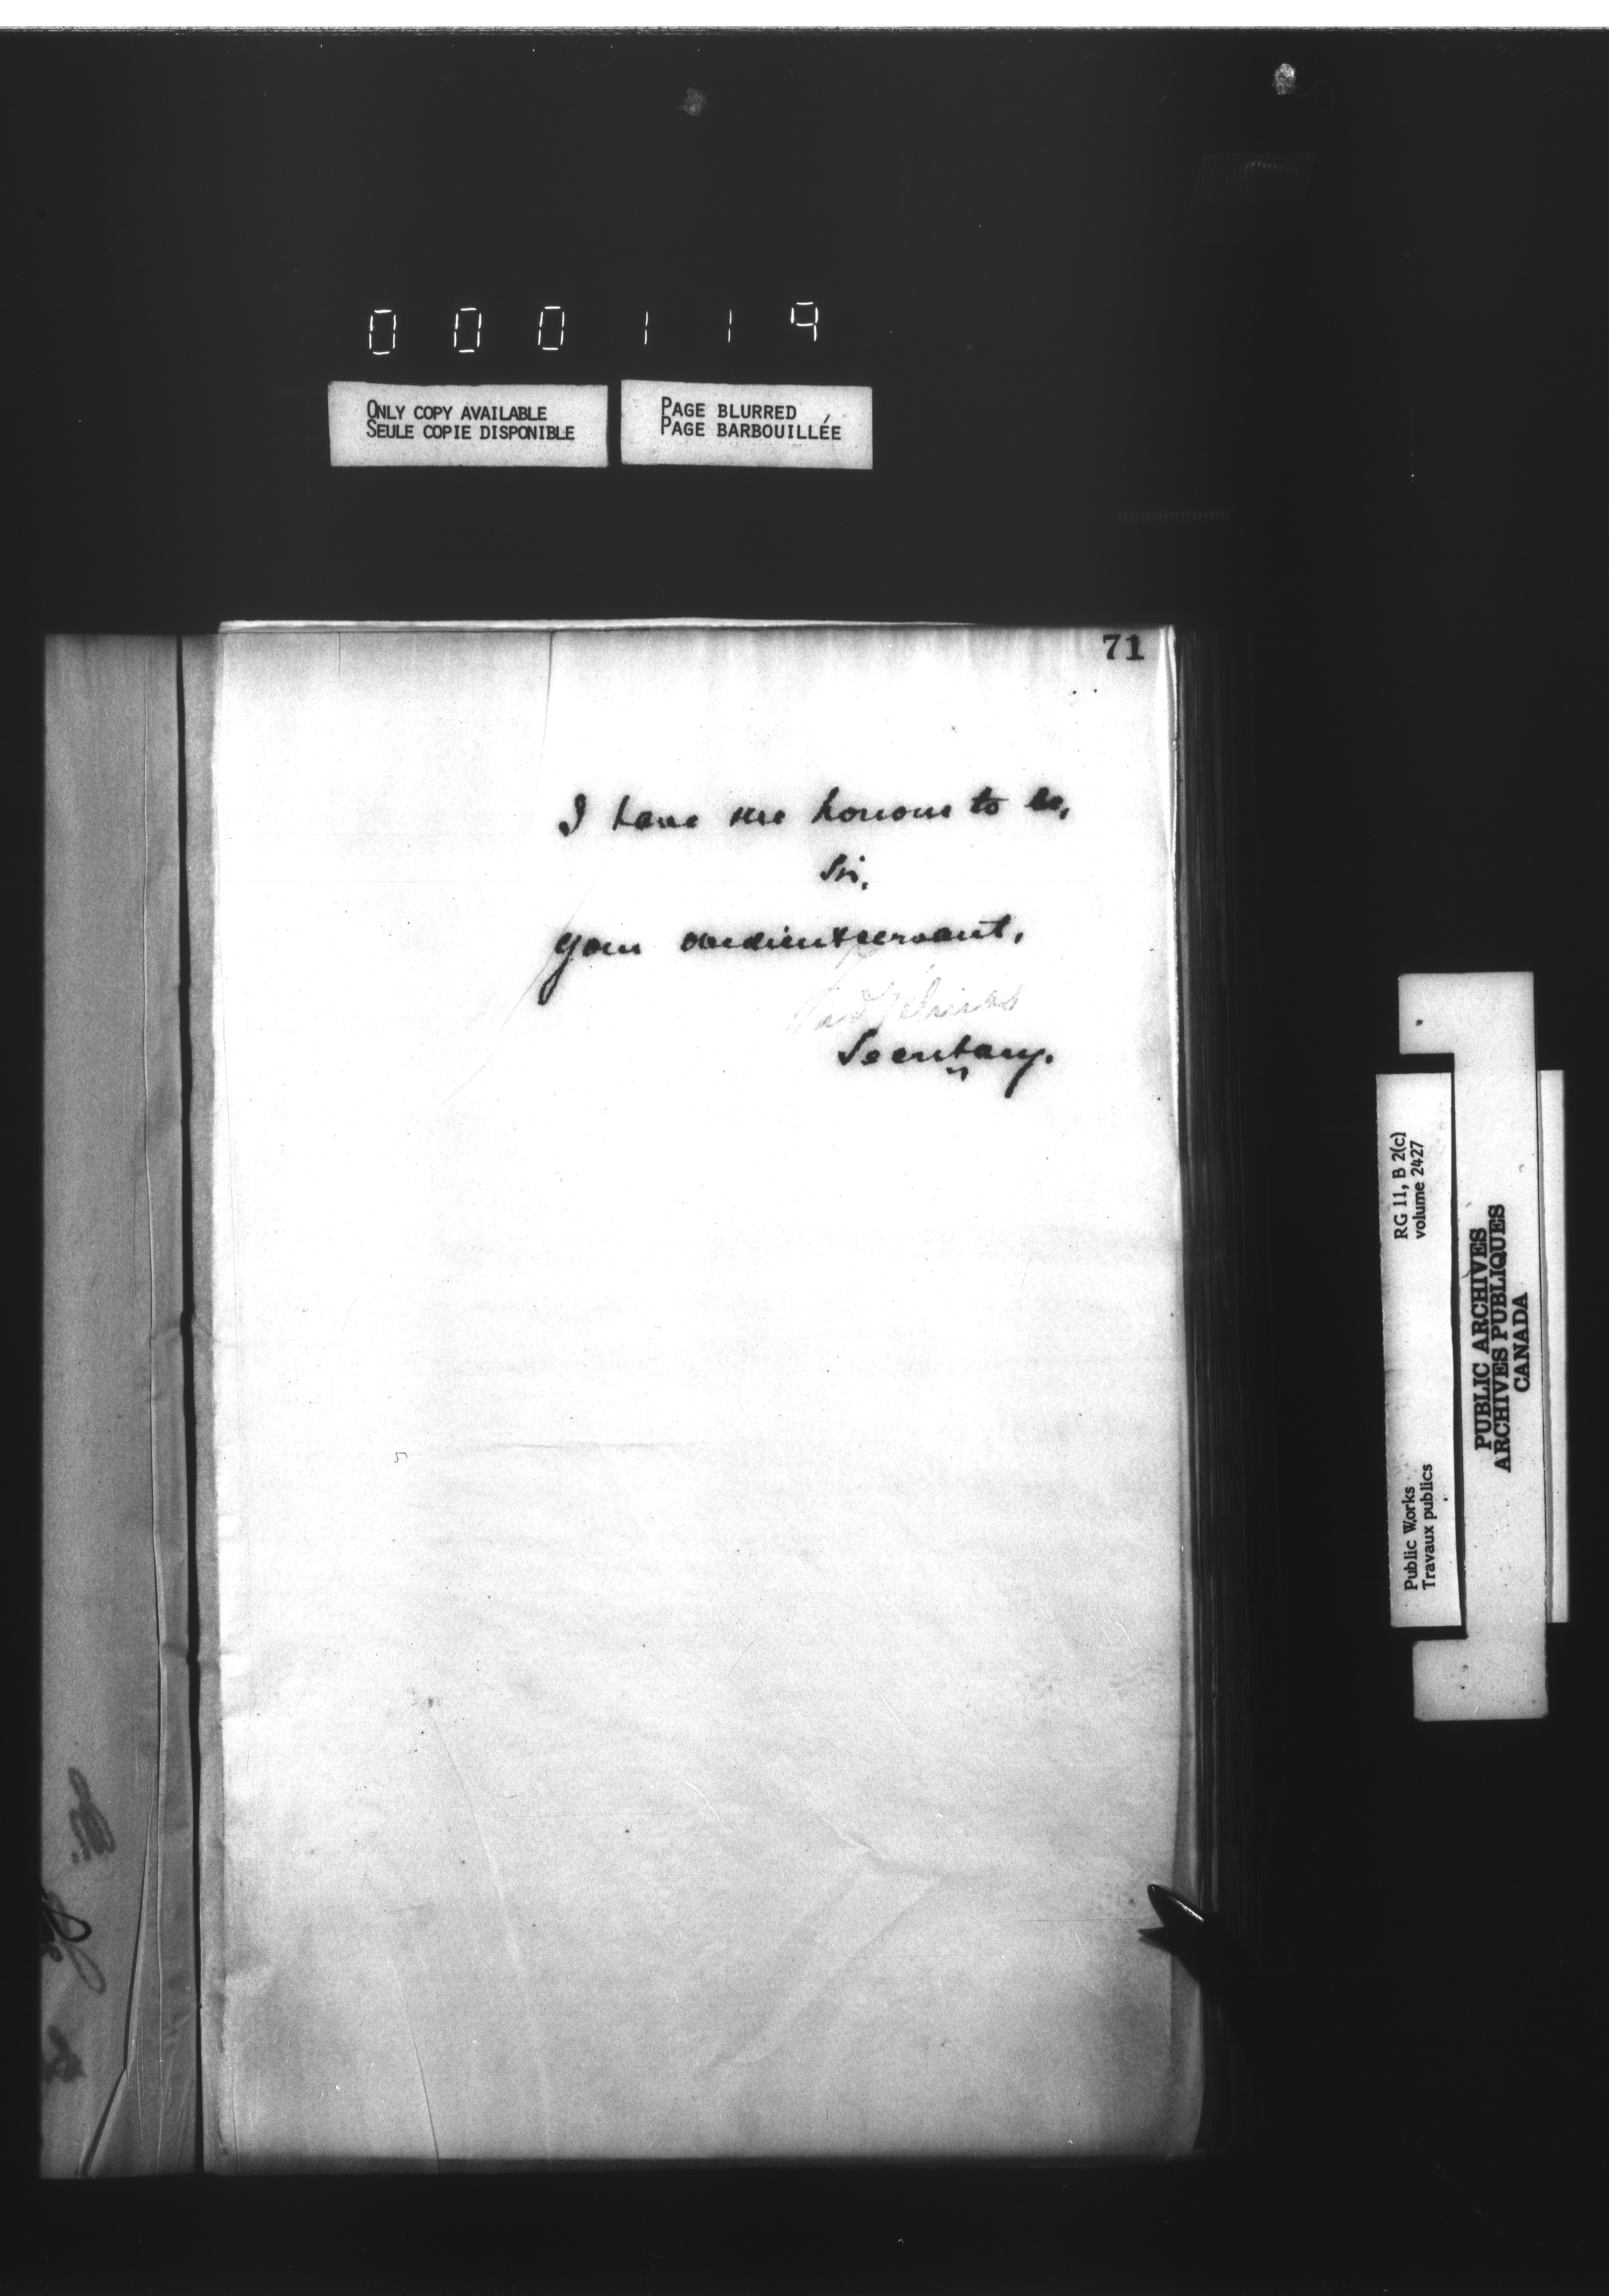 000119
ONLY COPY AVAILABLE
SEULE COPIE DISPONIBLE
PAGE BLURRED
PAGE BARBOUILLÉE
71
I have the honour to be,
Sir,
your obedient servant,
Secretary.
RG 11, B 2(c)
volume 2427
Public Works
Travaux publics
PUBLIC ARCHIVES
ARCHIVES PUBLIQUES
CANADA